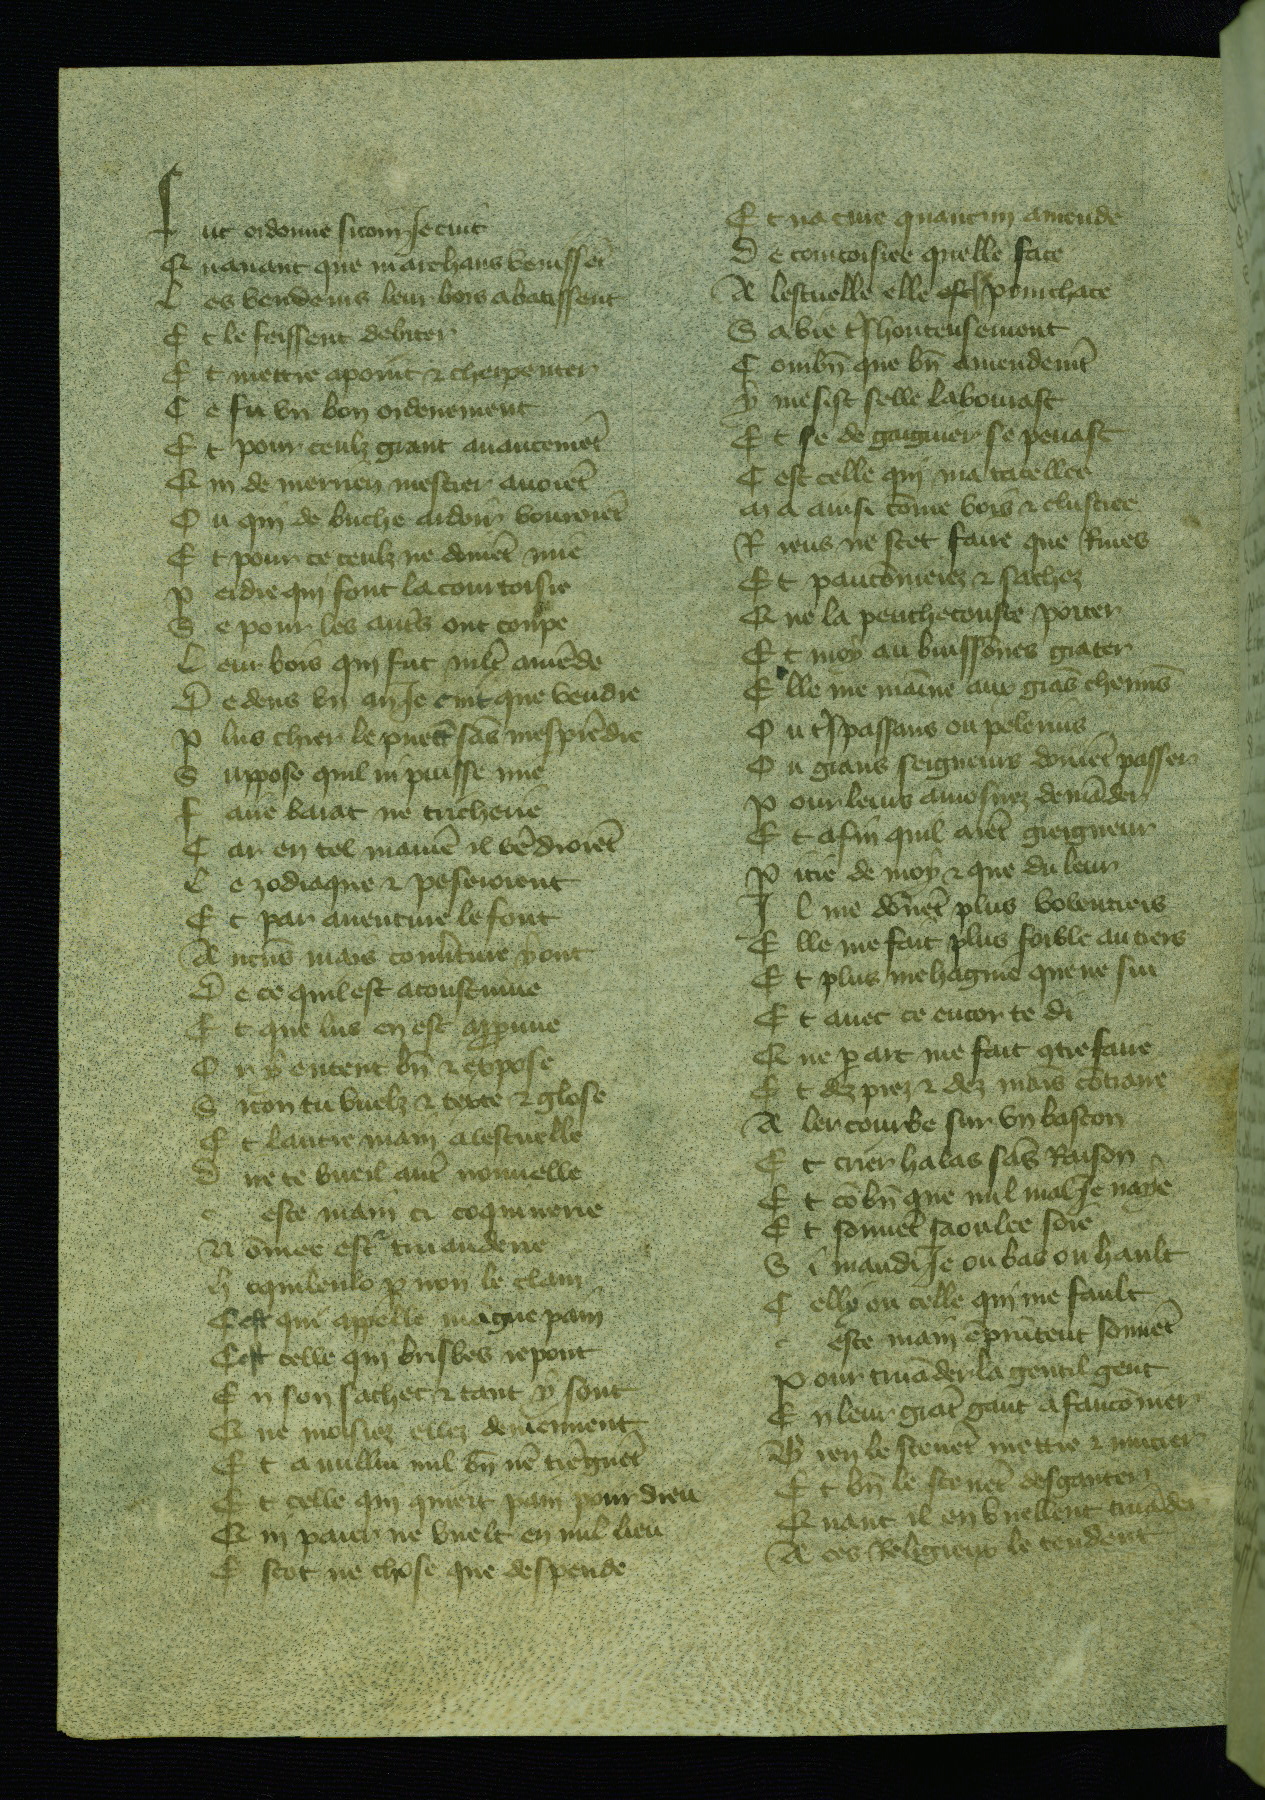 Fut ordonne sicom Je cuit
Quauant que marchans venissēt
Les vendeurs leur bois abatissent
Et le feissent debiter
Et mettre a point & cherpenter
Ce fu vn bon ordenement
Et pour ceulz grant auancemēt
Qui de merrien mestier auoiēt
Ou qui de buche ardoir vouroiēt
Et pour ce ceulz ne doiuēt mie
Perdre qui font la courtoisie
Se pour les autrs ont coupe
Leur bois qui fut mlt amēde
Dedens vn an Je cuit que vendre
Plus chier le puett sās mesprēdre
Suppose quil ni puisse mie
Faire barat ne tricherie
Car en tel maniē il vēdroiēt
Le zodiaque & peseroient
Et par auenture le font
Aucūs mais couūture y ont
De ce quil est acoustume
Et que lus en est appruue
Or y entent bn̄ & expose
Sicon tu vuelz & texte & glose
Et lautre main a lescuelle
Dire te vueil autr nouuelle
ceste main ci coquinerie
Nōmee est & truanderie
hcquilenlo par non le claim
Cest qui appelle maigne pain
Cest celle qui bribes repont
En son sachet & tant y sont
Que moisiez ellez deuiennent
Et a nulluy nul bn̄ nē viēgnēt
Et celle qui quiert pain pour dieu
Qui paier ne vuelt en nul lieu
Escot ne chose que despende
Et na cure quaucun amende
De courtoisiee quelle face
A lescuelle elle est & pourchace
Sa vie tshonteusement
Combn̄ que bn̄ amendemt
y mesist selle labourast
Et se de gaigner se penast
Cest celle qui ma truellee
Ma ainsi cōme vois & clustree
Riens ne scet faire que Rues
Et pautōnierez & sachez
Que la penthecouste porter
Et moy au buissōnes grater
Elle me maīne aux grās chemīs
Ou ts passans ou pelerins
Ou grans seigneurs doiuēt passer
Pour leurs aumosnez demāder
Et afin quil aiēt greigneur
Pitie de moy & que du leur
Il me dōnēt plus volentiers
Elle me fait plus foible au tiers
Et plus mehagnie que ne sui
Et auec ce encor te di
Que par art me fait cōtrefaire
Et dez piez & dez mais cōtraire
Aler courbe sur vn baston
Et crier halas sās Raison
Et cōbn̄ que nul mal Je naye
Et souuēt saoulee soie
Si maudi Je ou bas ou hault
Celly ou celle qui me fault
ceste main ēprūtent souuēt
Pour truāder la gentil gent
En leur grāt gant a faucōnier
Bien le sceuēt mettre & mucier
Et bn̄ le sceuēt desganter
Quant il en vuellent truāder
A ces Religieux le tendent